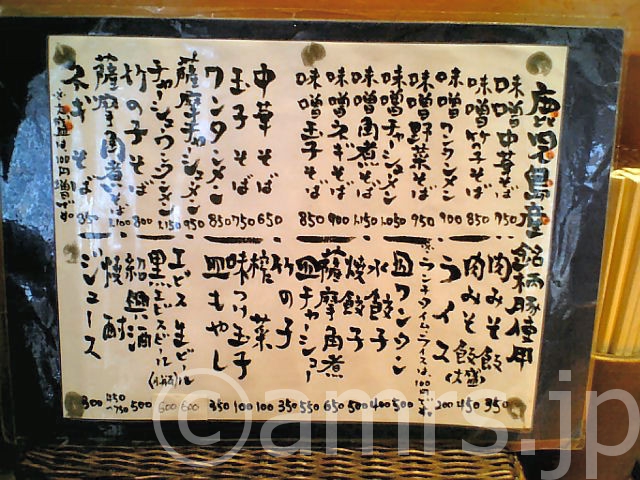 鹿児島産 銘柄豚使用
味噌中華そば 750
味噌竹の子そば 850
味噌ワンタンメン 900
味噌野菜そば 950
味噌チャーシューメン 1,050
味噌角煮そば 1,150
味噌ネギそば 900
味噌玉子そば 850
中華そば 650
玉子そば 750
ワンタンメン 850
薩摩チャーシューメン 950
チャーシューワンタンメン 1,150
竹の子そば 800
薩摩角煮そば 1,100
ネギそば 850
※大盛は100円増
肉みそ飯 350
肉みそ飯(大盛) 450
ライス 200
※ランチタイム、ライスは100円です
皿ワンタン 500
水餃子 400
焼餃子 500
薩摩角煮 650
皿チャーシュー 550
竹の子 350
搾菜 100
味つけ玉子 100
皿もやし 350
ヱビス生ビール 600
黒ヱビスビール(小瓶) 600
紹興酒 500
焼酎 450~750
ジュース 300
©amrs.jp